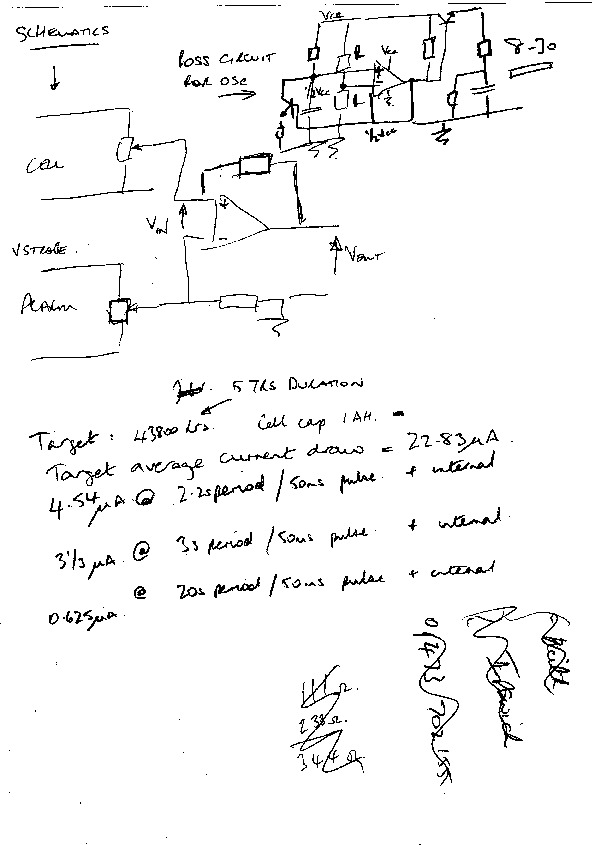 SCHEMATICS
POSS CIRCUIT
FOR OSC
Vcc
R
Vcc
½Vcc
R
½Vcc
8-30
CELL
VIN
VSTROBE
VOUT
ALARM
5 YRS DURATION
Target: 43800 hrs. Cell cap 1AH.
Target average current draw = 22.83µA.
4.54µA @ 2.2s period / 50ms pulse + internal
3⅓µA @ 3s period / 50ms pulse + internal
0.625µA @ 20s period / 50ms pulse + internal
238Ω
344Ω